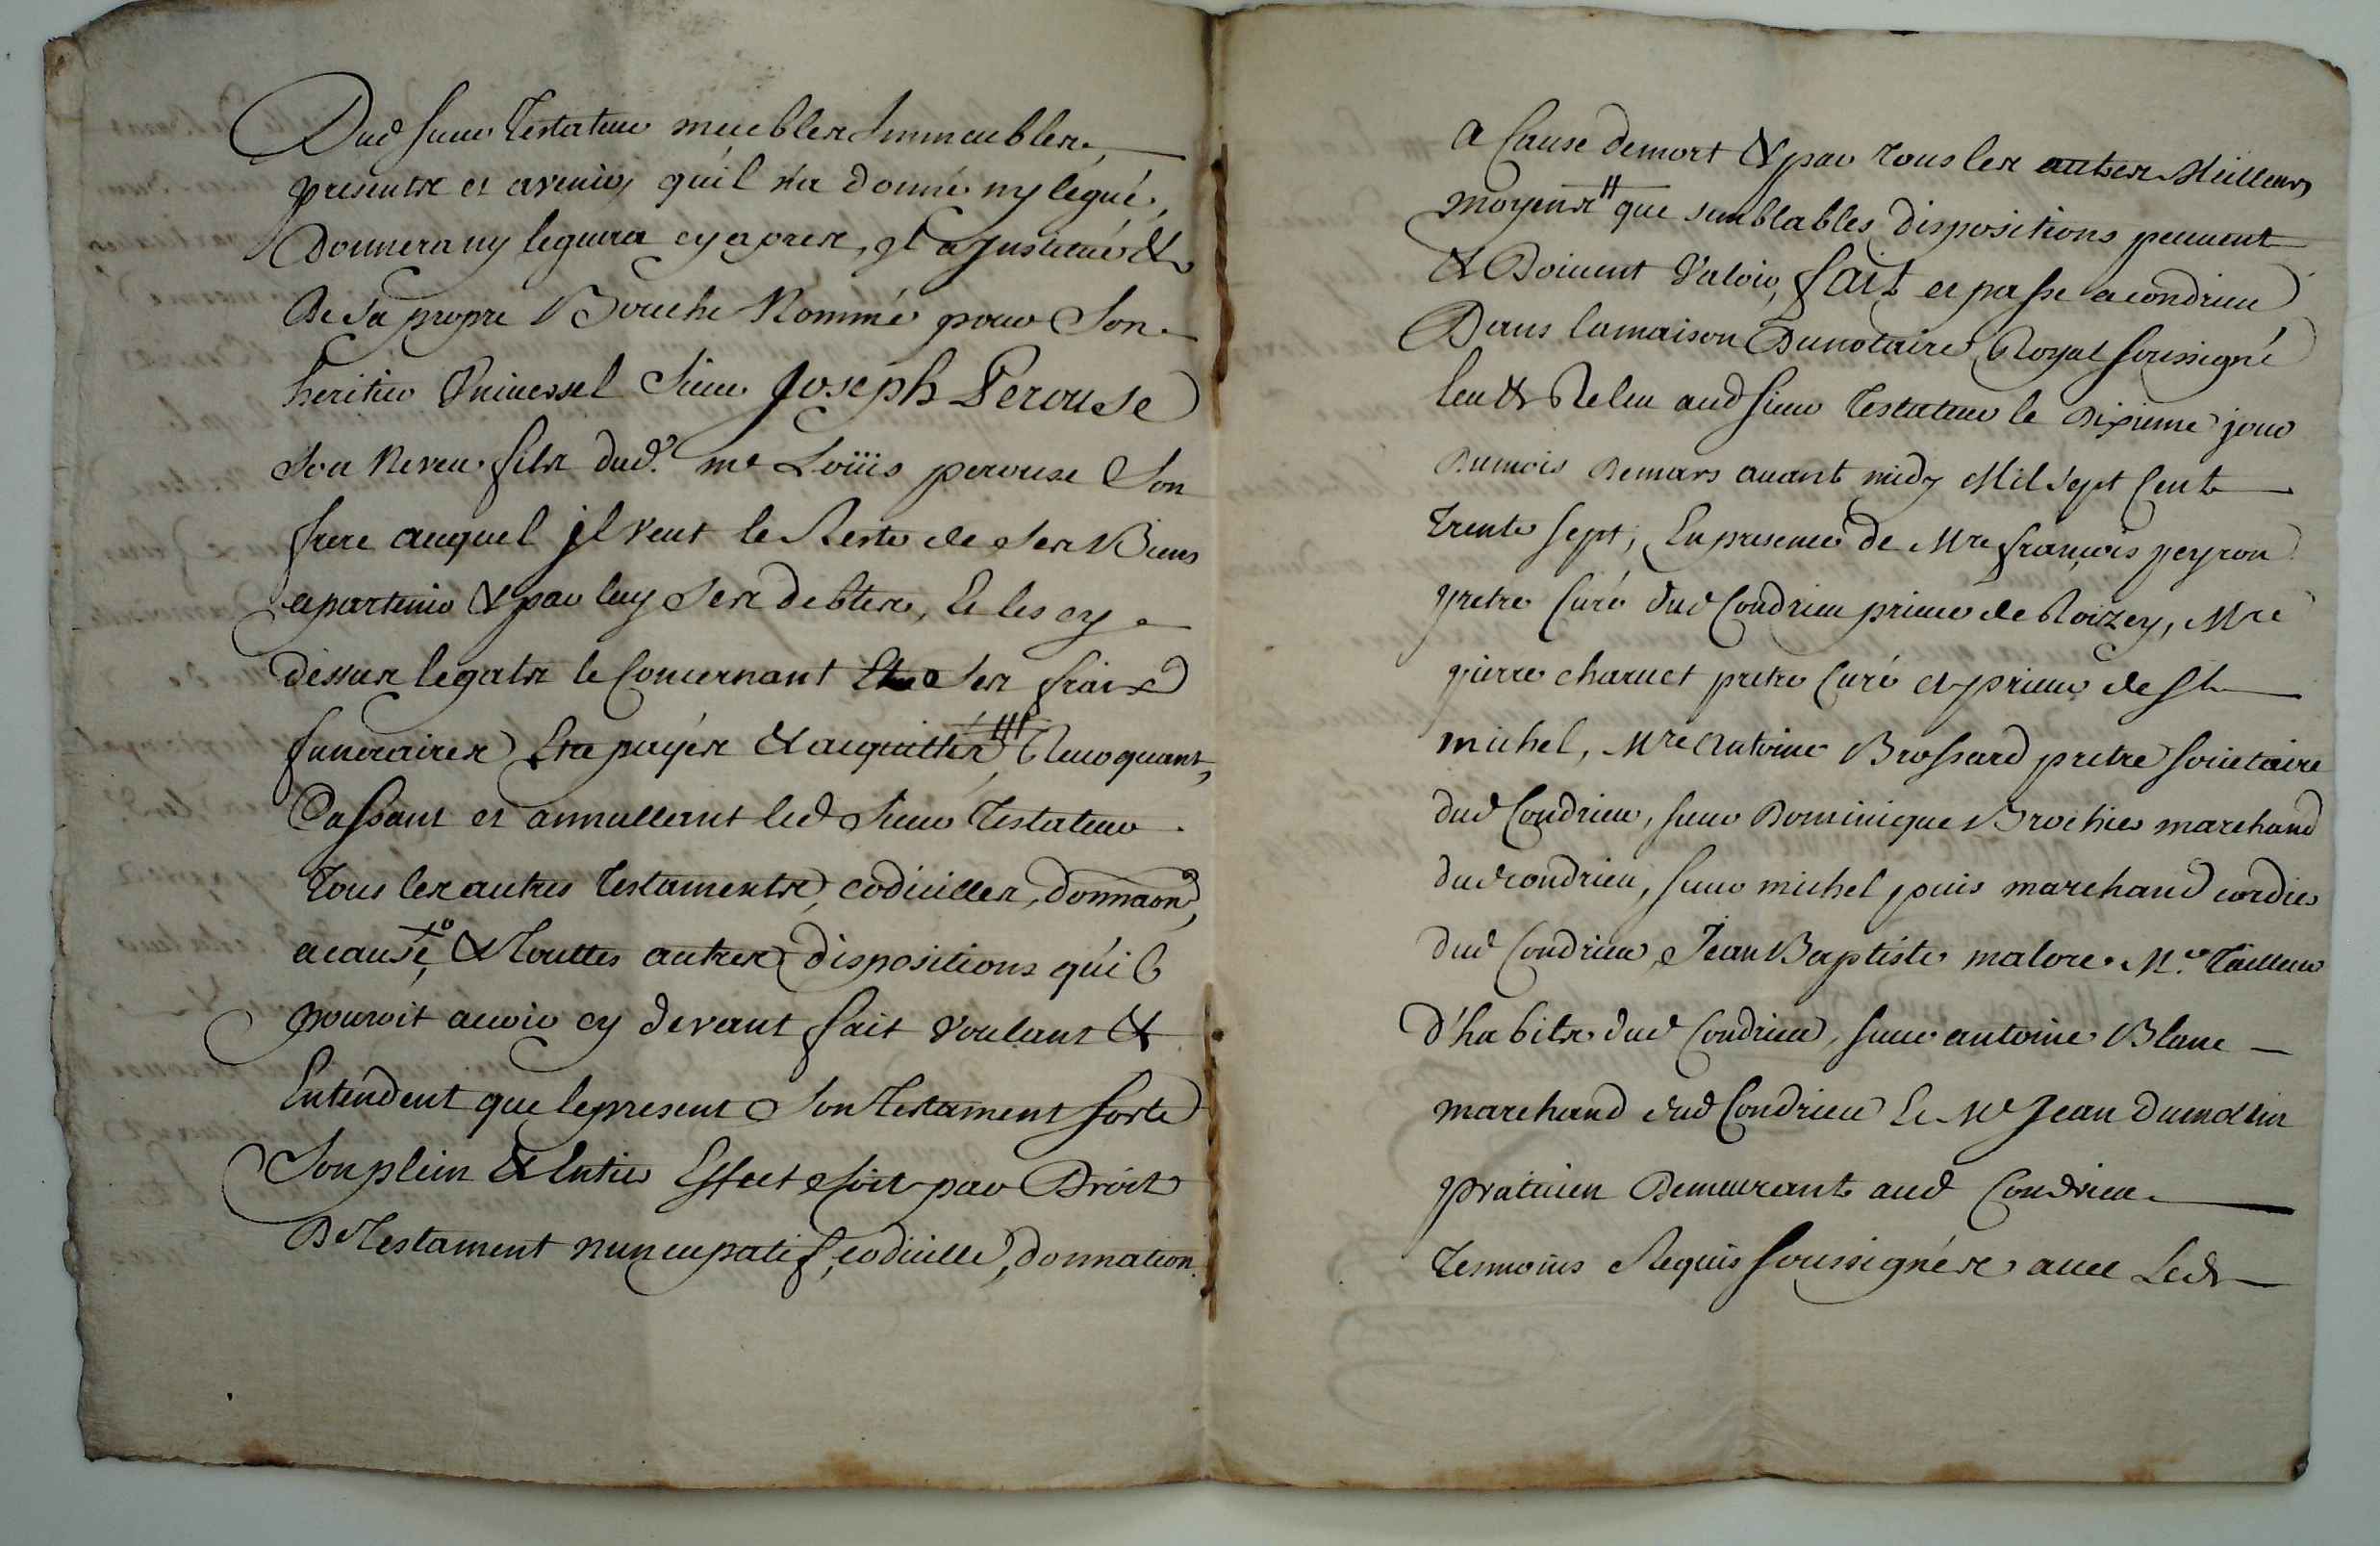 Dud sieur Testateur meubles Immeubles,
presents et avenir, qu'il n'a donné ny légué,
Donnera ny leguera cy apres, Il a Jnstitué &
De sa propre Bouche Nommé pour Son
heritier Universel Sieur Joseph Perouse
Son Neveu fils dud. me Loüis perouse Son
frere auquel jl veut le Reste de ses Biens
apartenir & par luy ses debtes, Et les cy
dessus legats le Concernant Ses frais
funeraires Etre payés & acquittés, Revoquant,
Cassant et annullant led Sieur Testateur
Tous les autres Testaments, codicilles, donnaon,
a cause, & Touttes autres dispositions qu'il
pouroit avoir cy devant fait voulant &
Entendent que le present Son Testament sorte
Son plein & Entier Effect soit par Droit
De Testament nuncupatif, codicille, donnation
a Cause de mort & par tous les autres Meilleurs
moyens que semblables dispositions peuvent
& Doivent Valoir, fait et passé a condrieu
Dans la maison Du notaire Royal soussigné
leu & Releu aud sieur Testateur le dixieme jour
Du mois De mars avant midy Mil sept Cent
trente sept, En presence de Mre françois peyron
pretre Curé dud Condrieu prieur de Roizey, Mre
pierre charvet pretre Curé et prieur de St
michel, Mre Antoine Brossard pretre societaire
dud Condrieu, sieur Dominique Brochier marchand
dud condrieu, sieur michel puis marchand cordier
dud Condrieu, Jean Baptiste malore Me Tailleur
d'habits dud Condrieu, sieur antoine Blanc
marchand dud Condrieu Et Me Jean dumolin
praticien Demeurant aud Condrieu
Tesmoins Requis soussignés avec Led